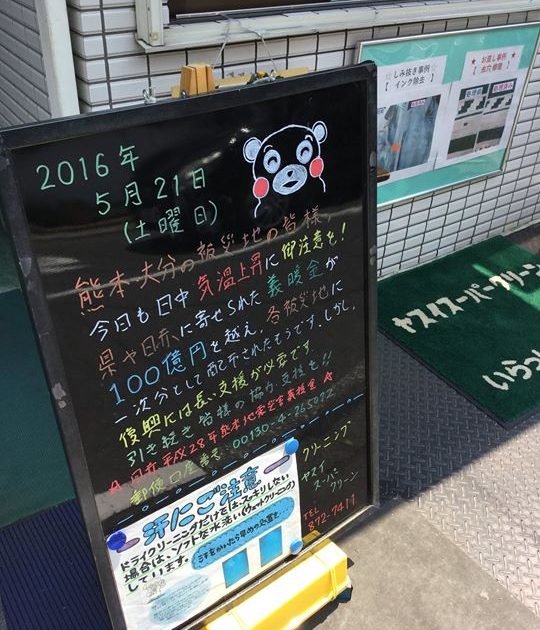 2016年
5月21日
(土曜日)
熊本・大分の被災地の皆様、
今日も日中気温上昇に御注意を!
県や日赤に寄せられた義援金が
100億円を越え、各被災地に
一次分として配布されたもようです。しかし、
復興には長い支援が必要です
引き続き皆様の協力支援も!!
日赤平成28年熊本地震災害義援金
郵便口座番号 00130-4-265072
クリーニング
ヤスイ
スーパー
クリーン
TEL
872-7411
汗にご注意
ドライクリーニングだけではスッキリしない
場合は、ソフトな水洗い(ウェットクリーニング)
しています。
汗をかいたら早めの処置を…
☆しみ抜き事例☆
【インク除去】
★お直し事例★
【虫穴修理】
ヤスイスーパークリーン
いらっ